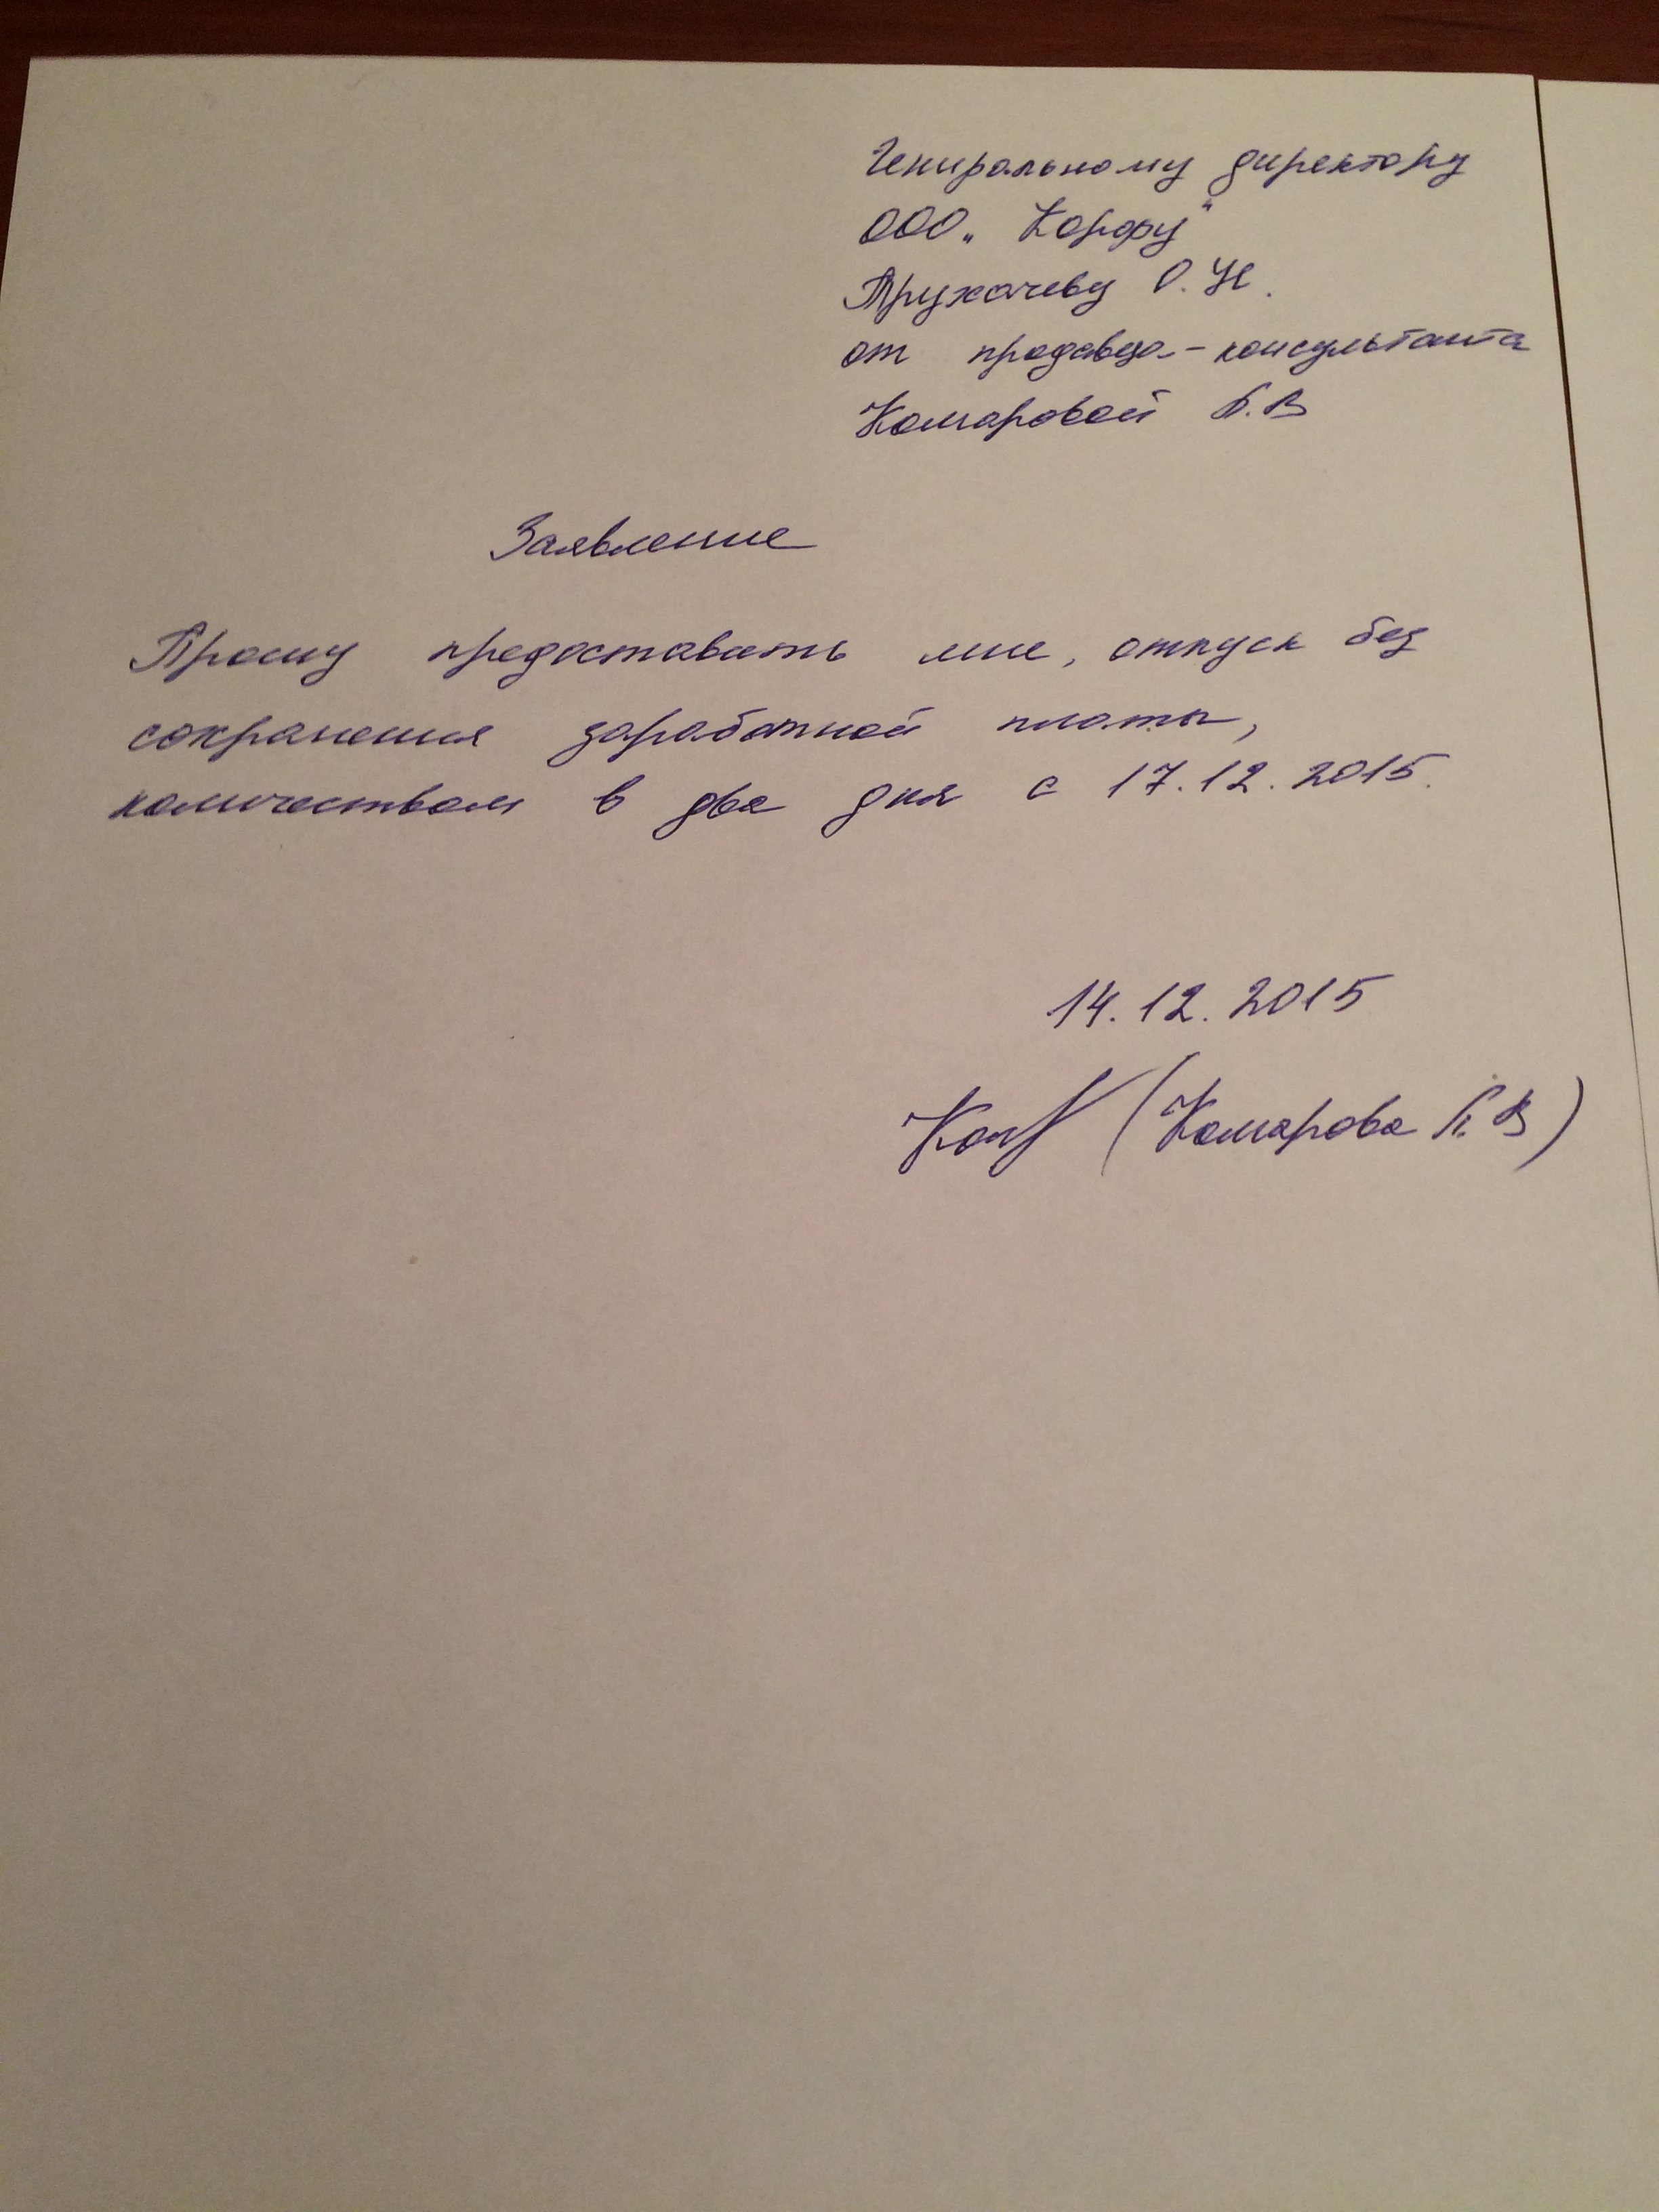 Гениральному директору
ООО „Корфу"
Пружачеву О. Н.
от продавца-консультанта
Комаровой Б. В
Заявление
Прошу предоставать мне, отпуск без
сохранения заработной платы,
количеством в два дня с 17.12.2015.
14.12.2015
(Комарова В)